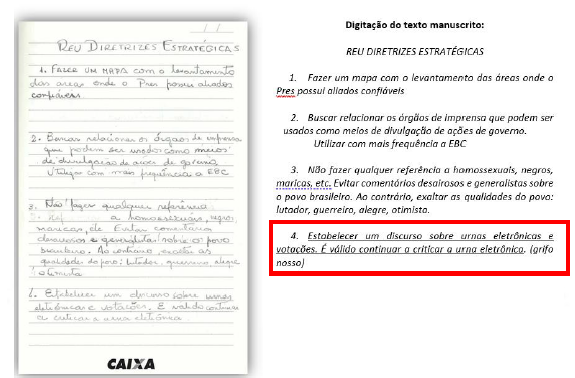 REU DIRETRIZES ESTRATÉGICAS
1. FAZER UM MAPA com o levantamento
das áreas onde o Pres possui aliados
confiáveis
2. Buscar relacionar os órgãos de imprensa
que podem ser usados como meios
de divulgação de ações de governo
Utilizar com mais frequência a EBC
3. Não fazer qualquer referência
a homossexuais, negros
maricas, etc Evitar comentários
desairosos e generalistas sobre o povo
brasileiro. Ao contrário, exaltar as
qualidades do povo: lutador, guerreiro, alegre
otimista
4. Estabelecer um discurso sobre urnas
eletrônicas e votações. É válido continuar
a criticar a urna eletrônica
CAIXA
Digitação do texto manuscrito:
REU DIRETRIZES ESTRATÉGICAS
1. Fazer um mapa com o levantamento das áreas onde o
Pres possui aliados confiáveis
2. Buscar relacionar os órgãos de imprensa que podem ser
usados como meios de divulgação de ações de governo.
Utilizar com mais frequência a EBC
3. Não fazer qualquer referência a homossexuais, negros,
maricas, etc. Evitar comentários desairosos e generalistas sobre
o povo brasileiro. Ao contrário, exaltar as qualidades do povo:
lutador, guerreiro, alegre, otimista.
4. Estabelecer um discurso sobre urnas eletrônicas e
votações. É válido continuar a criticar a urna eletrônica. (grifo
nosso)